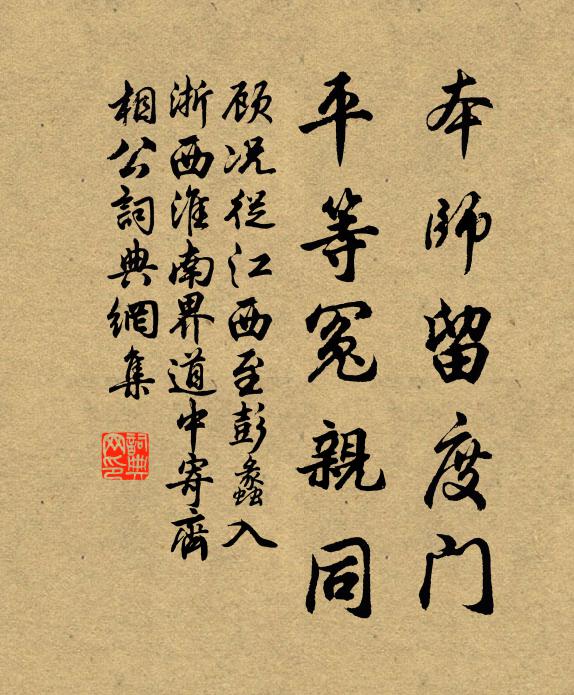 本師留度门
平等冤親同
顾况從江西至彭蠡入
浙西淮南界道中寄齊
相公詞典網集
詞典
网印